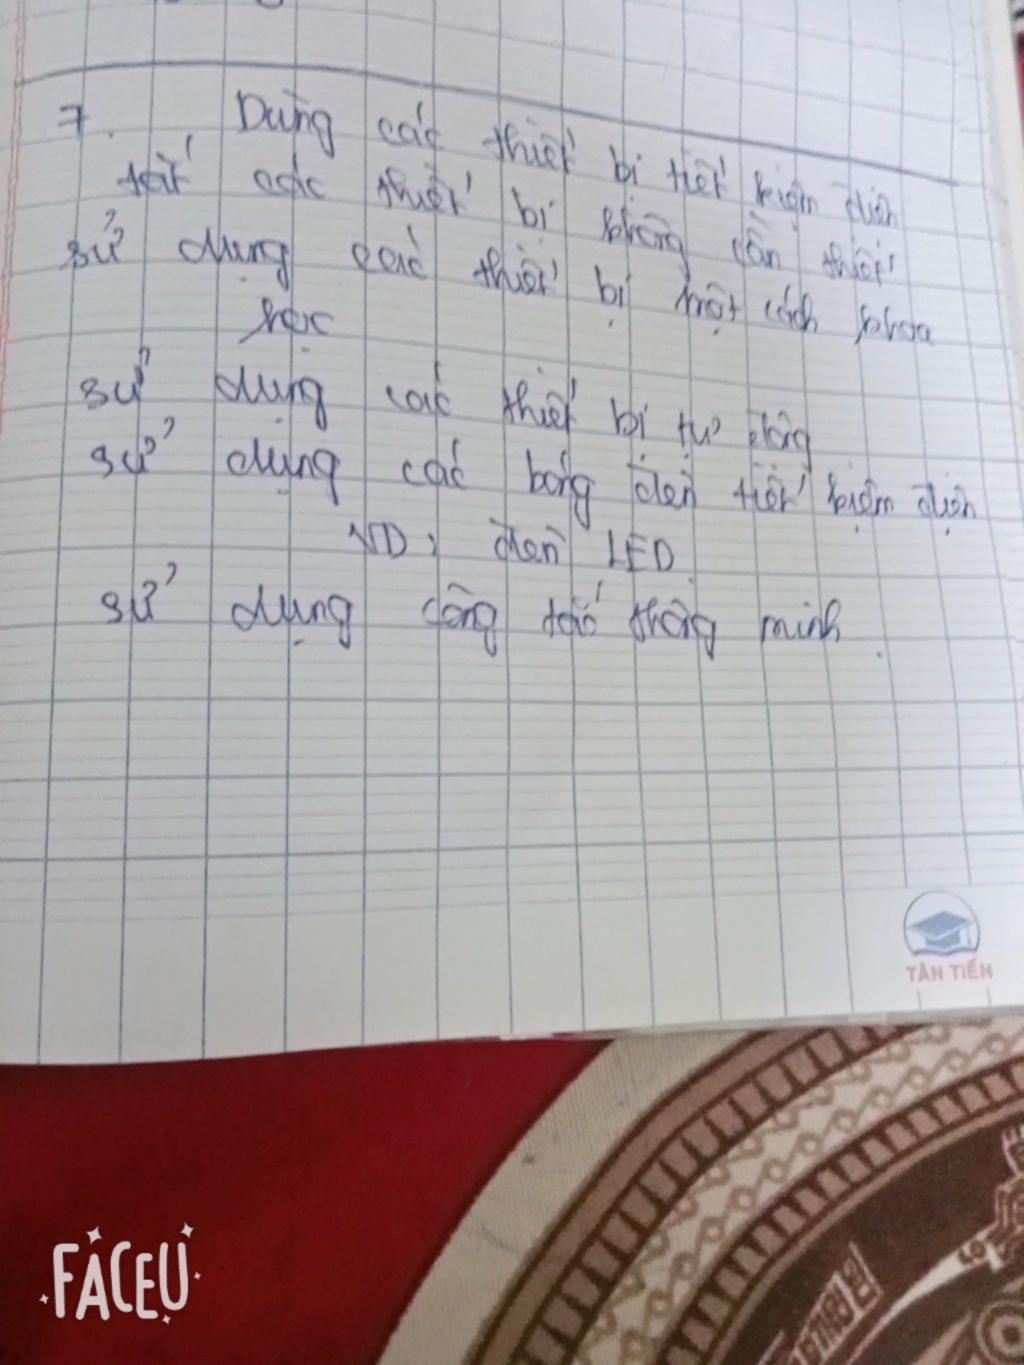 7. Dùng các thiết bị tiết kiệm điện
tắt các thiết bị không cần thiết
sử dụng các thiết bị một cách khoa
học
sử dụng các thiết bị tự động
sử dụng các bóng đèn tiết kiệm điện
VD: đèn LED
sử dụng công tắc thông minh.
TÂN TIẾN
FACEU